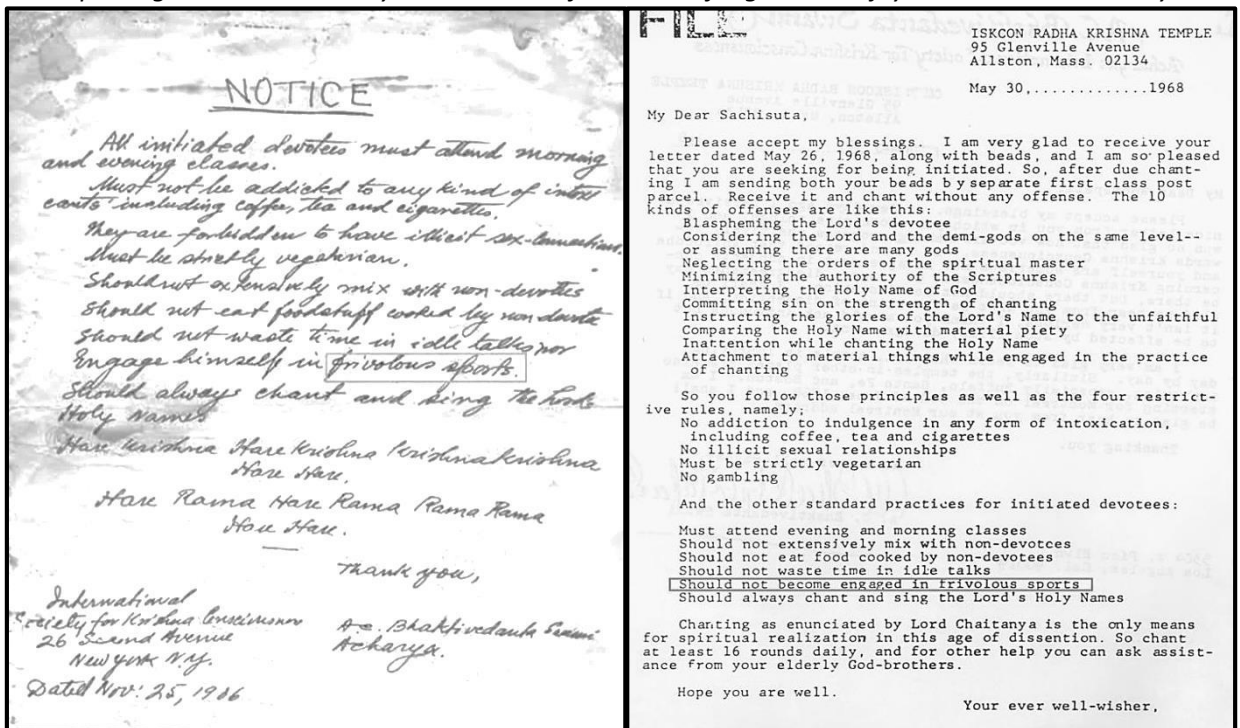 NOTICE
All initiated devotees must attend morning
and evening classes.
Must not be addicted to any kind of intoxi
cants including coffee, tea and cigarettes.
They are forbidden to have illicit sex-connections.
Must be strictly vegetarian.
Should not extensively mix with non-devotees
Should not eat foodstuff cooked by non devotee
Should not waste time in idle talks nor
Engage himself in frivolous sports.
Should always chant and sing the Lords
Holy Names
Hare Krishna Hare Krishna Krishna Krishna
Hare Hare.
Hare Rama Hare Rama Rama Rama
Hare Hare.
Thank you,
International
Society for Krishna Consciousness
26 Second Avenue
New York N.Y.
Dated Nov: 25, 1966
A.C. Bhaktivedanta Swami
Acharya.
FILE
ISKCON RADHA KRISHNA TEMPLE
95 Glenville Avenue
Allston, Mass. 02134
May 30,.............1968
My Dear Sachisuta,
Please accept my blessings. I am very glad to receive your
letter dated May 26, 1968, along with beads, and I am so pleased
that you are seeking for being initiated. So, after due chant-
ing I am sending both your beads by separate first class post
parcel. Receive it and chant without any offense. The 10
kinds of offenses are like this:
Blaspheming the Lord's devotee
Considering the Lord and the demi-gods on the same level--
or assuming there are many gods
Neglecting the orders of the spiritual master
Minimizing the authority of the Scriptures
Interpreting the Holy Name of God
Committing sin on the strength of chanting
Instructing the glories of the Lord's Name to the unfaithful
Comparing the Holy Name with material piety
Inattention while chanting the Holy Name
Attachment to material things while engaged in the practice
of chanting
So you follow those principles as well as the four restrict-
ive rules, namely;
No addiction to indulgence in any form of intoxication,
including coffee, tea and cigarettes
No illicit sexual relationships
Must be strictly vegetarian
No gambling
And the other standard practices for initiated devotees:
Must attend evening and morning classes
Should not extensively mix with non-devotees
Should not eat food cooked by non-devotees
Should not waste time in idle talks
Should not become engaged in frivolous sports
Should always chant and sing the Lord's Holy Names
Chanting as enunciated by Lord Chaitanya is the only means
for spiritual realization in this age of dissention. So chant
at least 16 rounds daily, and for other help you can ask assist-
ance from your elderly God-brothers.
Hope you are well.
Your ever well-wisher,